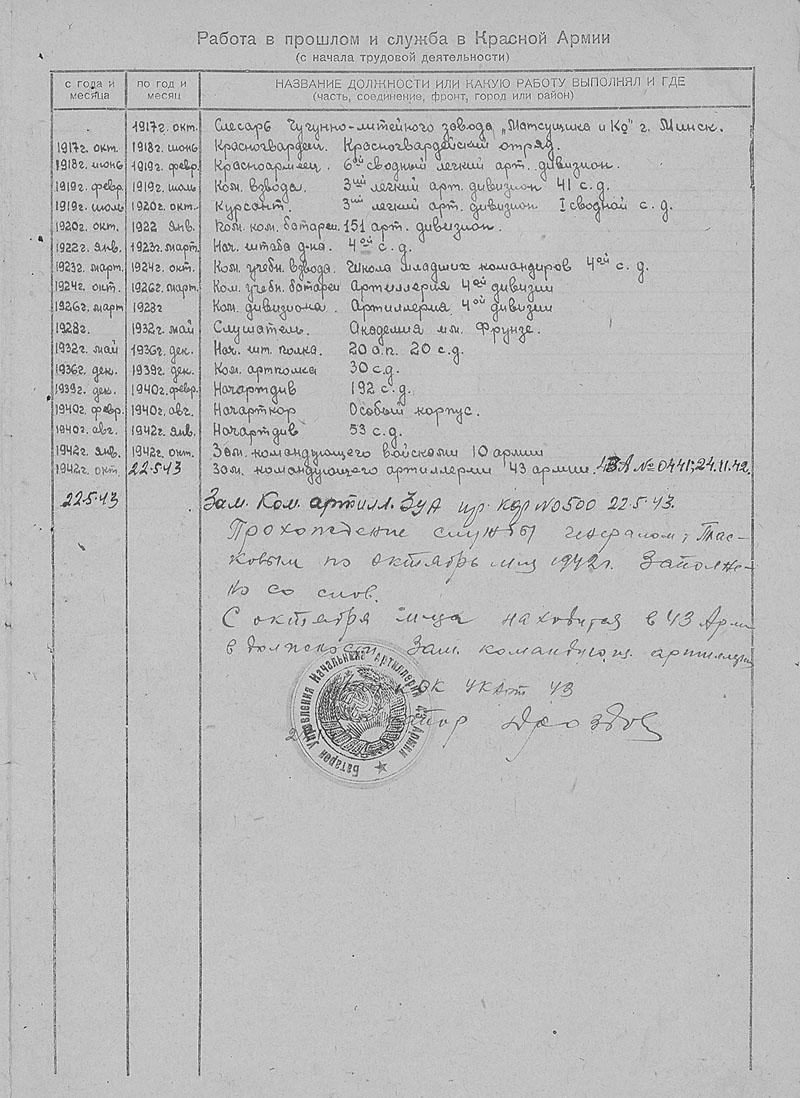 Работа в прошлом и служба в Красной Армии
(с начала трудовой деятельности)
с года и месяца по год и месяц НАЗВАНИЕ ДОЛЖНОСТИ ИЛИ КАКУЮ РАБОТУ ВЫПОЛНЯЛ И ГДЕ
(часть, соединение, фронт, город или район)
1917г. окт. Слесарь Чугунно-литейного завода г. Минск.
1917г. окт. 1918г. июнь Красногвардеец. Красногвардейский отряд.
1918г. июнь 1919г. февр. Красноармеец. 6ой сводный легкий арт. дивизион.
1919г. февр. 1919г. июль Ком. взвода. 3ий легкий арт. дивизион 41 с.д.
1919г. июль 1920г. окт. Курсант. 3ий легкий арт. дивизион I сводной с.д.
1920г. окт. 1922 янв. Пом. ком. батареи. 151 арт. дивизион.
1922г. янв. 1923г. март. Нач. штаба д-на. 4ой с.д.
1923г. март. 1924г. окт. Ком. учебн. взвода. Школа младших командиров 4ой с.д.
1924г. окт. 1926г. март. Ком. учебн. батареи Артиллерия 4ой дивизии
1926г. март 1928г Ком. дивизиона. Артиллерия 4ой дивизии
1928г. 1932г. май Слушатель. Академия им. Фрунзе.
1932г. май 1936г. дек. Нач. шт. полка. 20 а.п. 20 с.д.
1936г. дек. 1939г. дек. Ком. артполка 30 с.д.
1939г. дек. 1940г. февр. Начартдив 192 с.д.
1940г. февр. 1940г. авг. Начарткор Особый корпус.
1940г. авг. 1942г. янв. Начартдив 53 с.д.
1942г. янв. 1942г. окт. Зам. командующего войсками 10 армии
1942г. окт. 22.5.43 Зам. командующего артиллерии 43 армии. № 0441, 24.11.42.
22.5.43 Зам. Ком. артилл. 3 УА пр. КФ №0500 22.5.43.
Прохождение службы генералом Тас-
ковым по октябрь м-ц 1942г. Заполне-
но со слов.
С октября м-ца находится в 43 Арм
в должности Зам. командующ. артиллерии
43
Дроздов
Батарея Управления Начальника Артиллерии 43 Армии